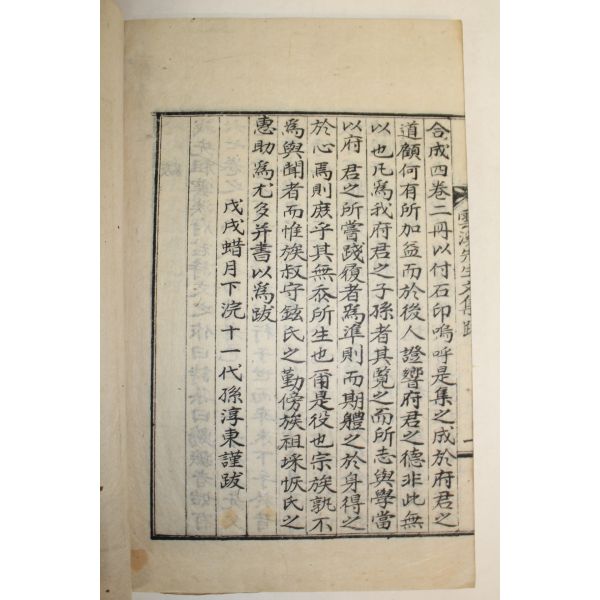 雲溪先生文集跋
合成四卷二冊以付石印嗚呼是集之成於府君之
道顧何有所加益而於後人證嚮府君之德非此無
以也凡爲我府君之子孫者其覽之而所志與學當
以府君之所嘗踐履者爲準則而期體之於身得之
於心焉則庶乎其無忝所生也爾是役也宗族孰不
爲與聞者而惟族叔守鉉氏之勤傍族祖埰恢氏之
惠助爲尤多并書以爲跋
戊戌蜡月下浣十一代孫淳東謹跋